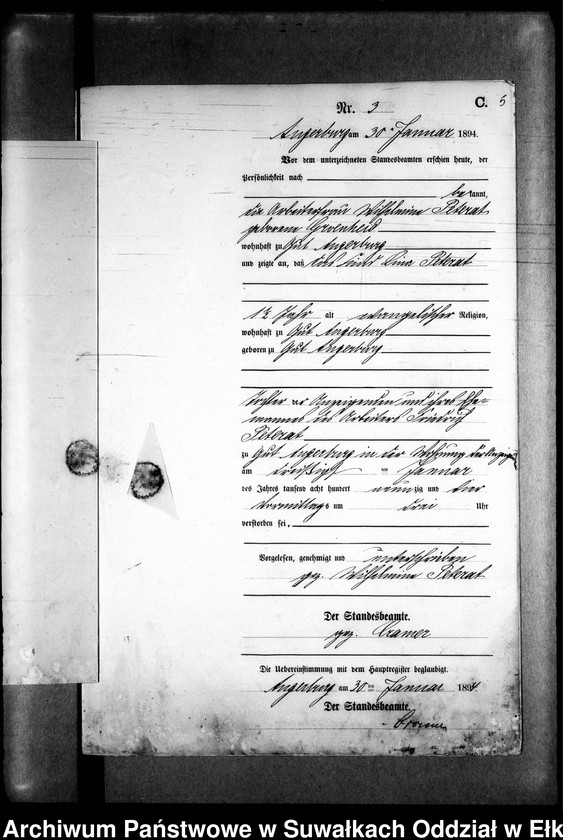 C. 5
Nr. 3
Angerburg am 30. Januar 1894.
Vor dem unterzeichneten Standesbeamten erschien heute, der
Persönlichkeit nach
bekannt,
die Arbeiterfrau Wilhelmine Peterat
geborene
wohnhaft zu Gut Angerburg
und zeigte an, daß das Kind Lina Peterat
Jahr alt evangelischer Religion,
wohnhaft zu Gut Angerburg
geboren zu Gut Angerburg
Tochter der Anzeigenden und ihres Ehe-
mannes des Arbeiters Friedrich
Peterat
zu Gut Angerburg in der Wohnung der Anzeigenden
am dreißigsten Januar
des Jahres tausend acht hundert neunzig und vier
Vormittags um drei Uhr
verstorben sei.
Vorgelesen, genehmigt und unterschrieben
gez. Wilhelmine Peterat
Der Standesbeamte.
gez. Cramer
Die Uebereinstimmung mit dem Hauptregister beglaubigt.
Angerburg am 30ten Januar 1894.
Der Standesbeamte.
Cramer
Archiwum Państwowe w Suwałkach Oddział w Ełk